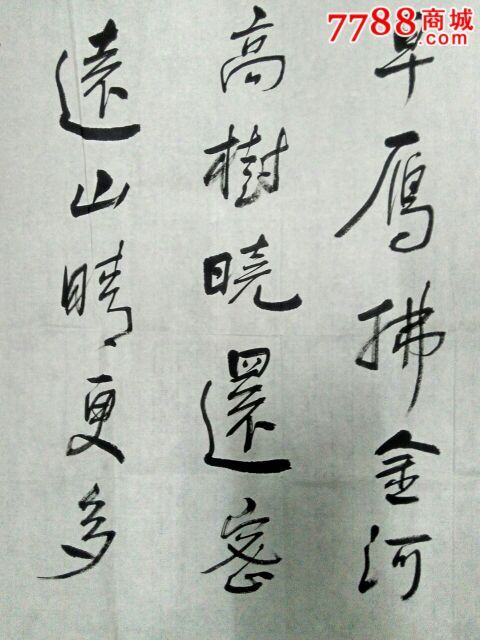 7788商城
.com
早鴈拂金河
高樹曉還密
遠山晴更多